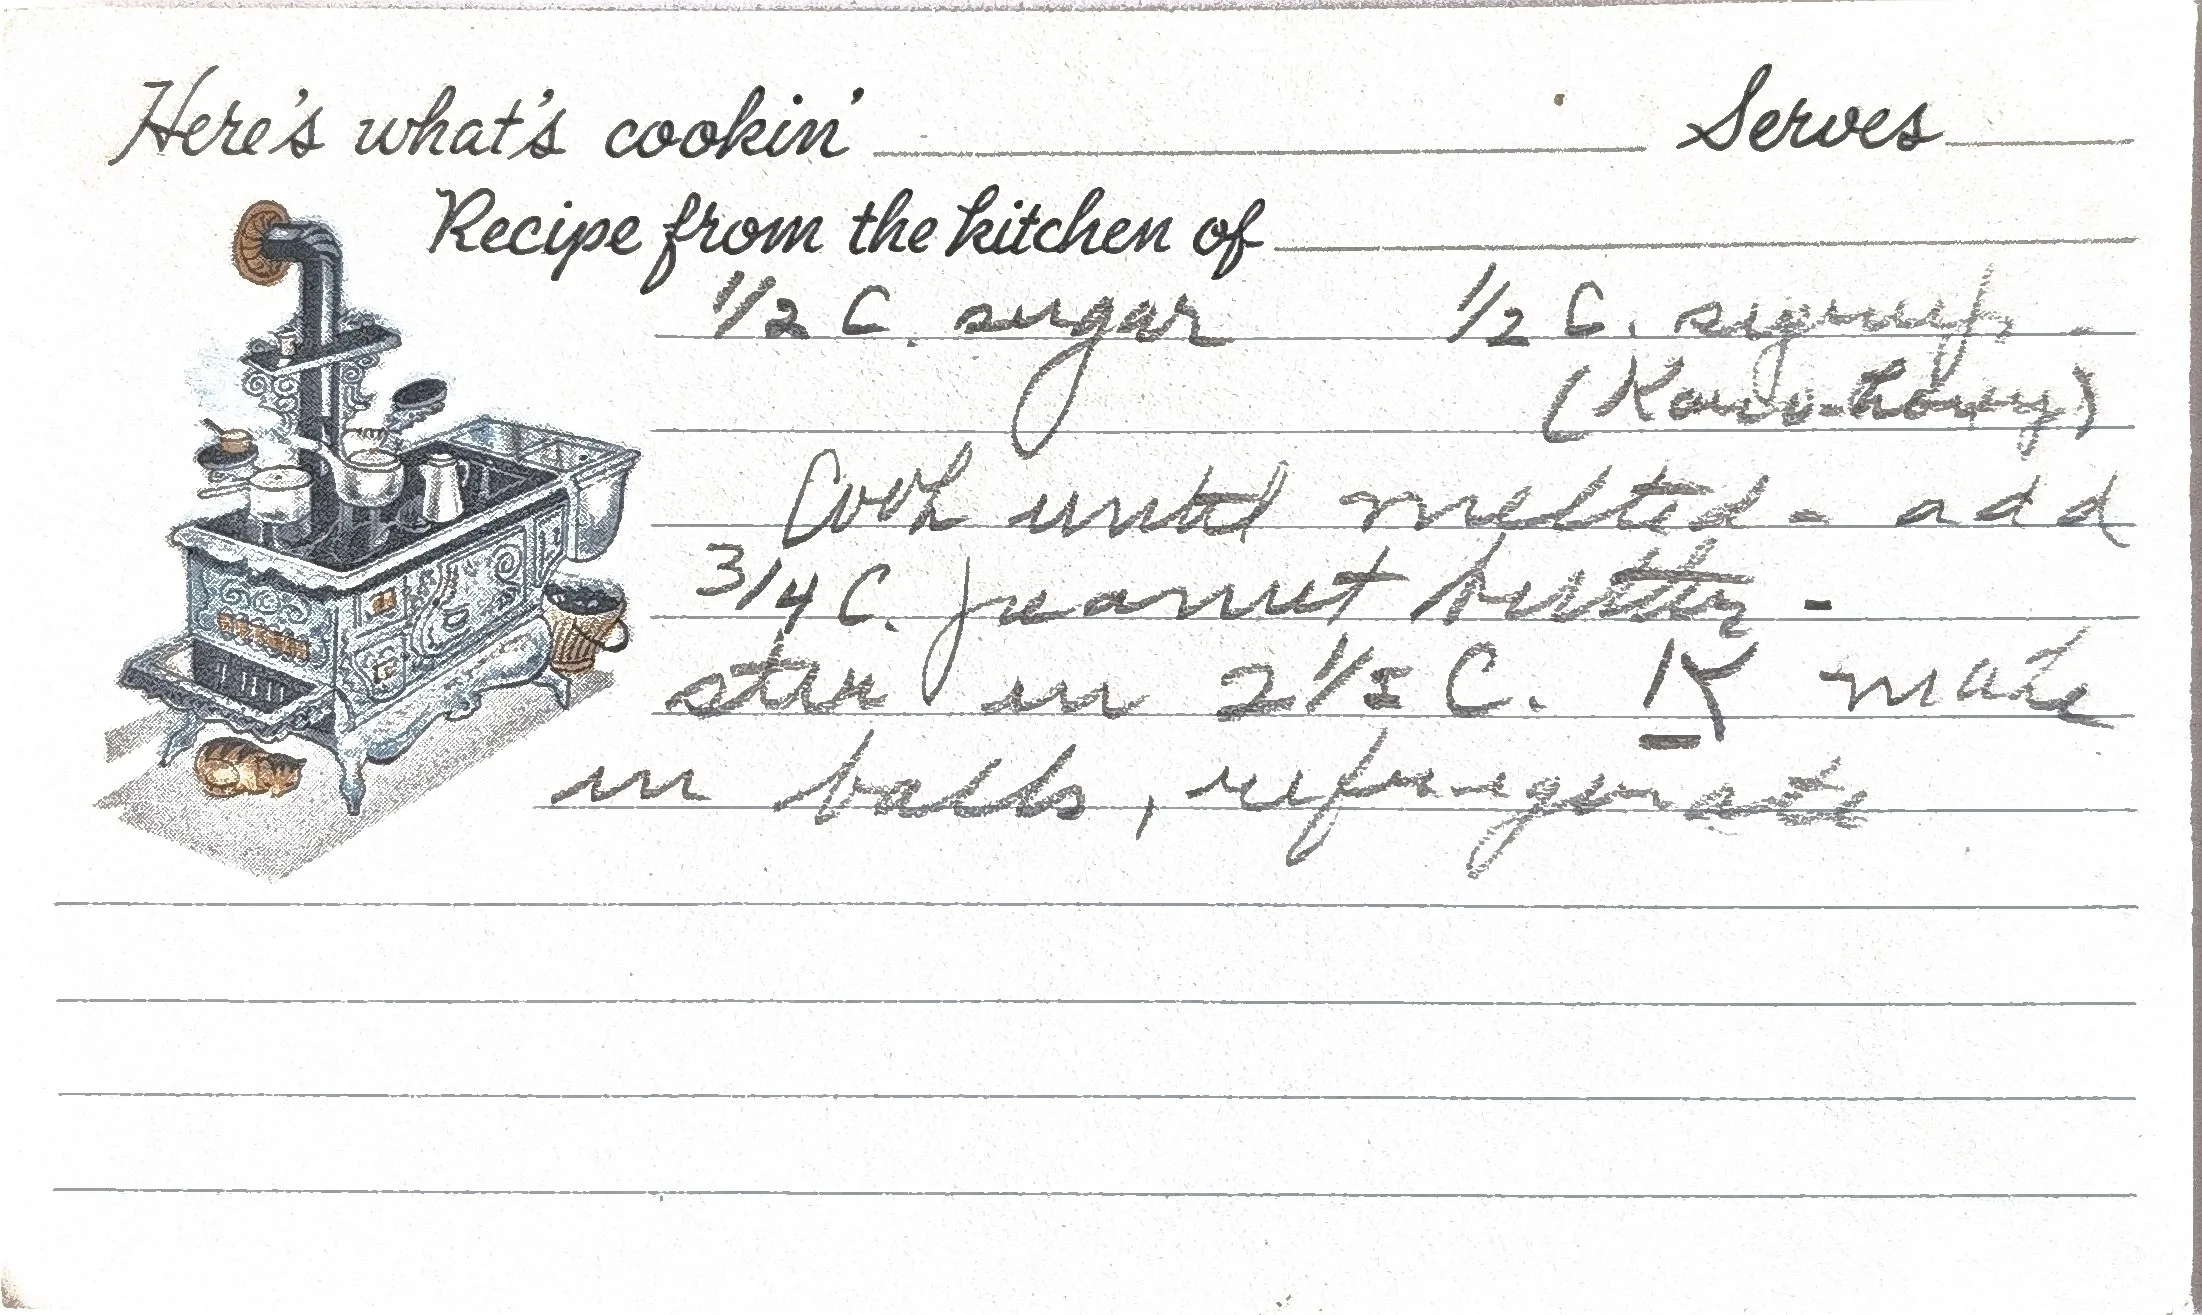 Here's what's cookin' Serves
Recipe from the kitchen of
1/2 C. sugar 1/2 C. sygrup
(Karo-honey)
Cook until melted - add
3/4 C. peanut butter -
stir in 2 1/2 C. K make
in balls, refrigerate